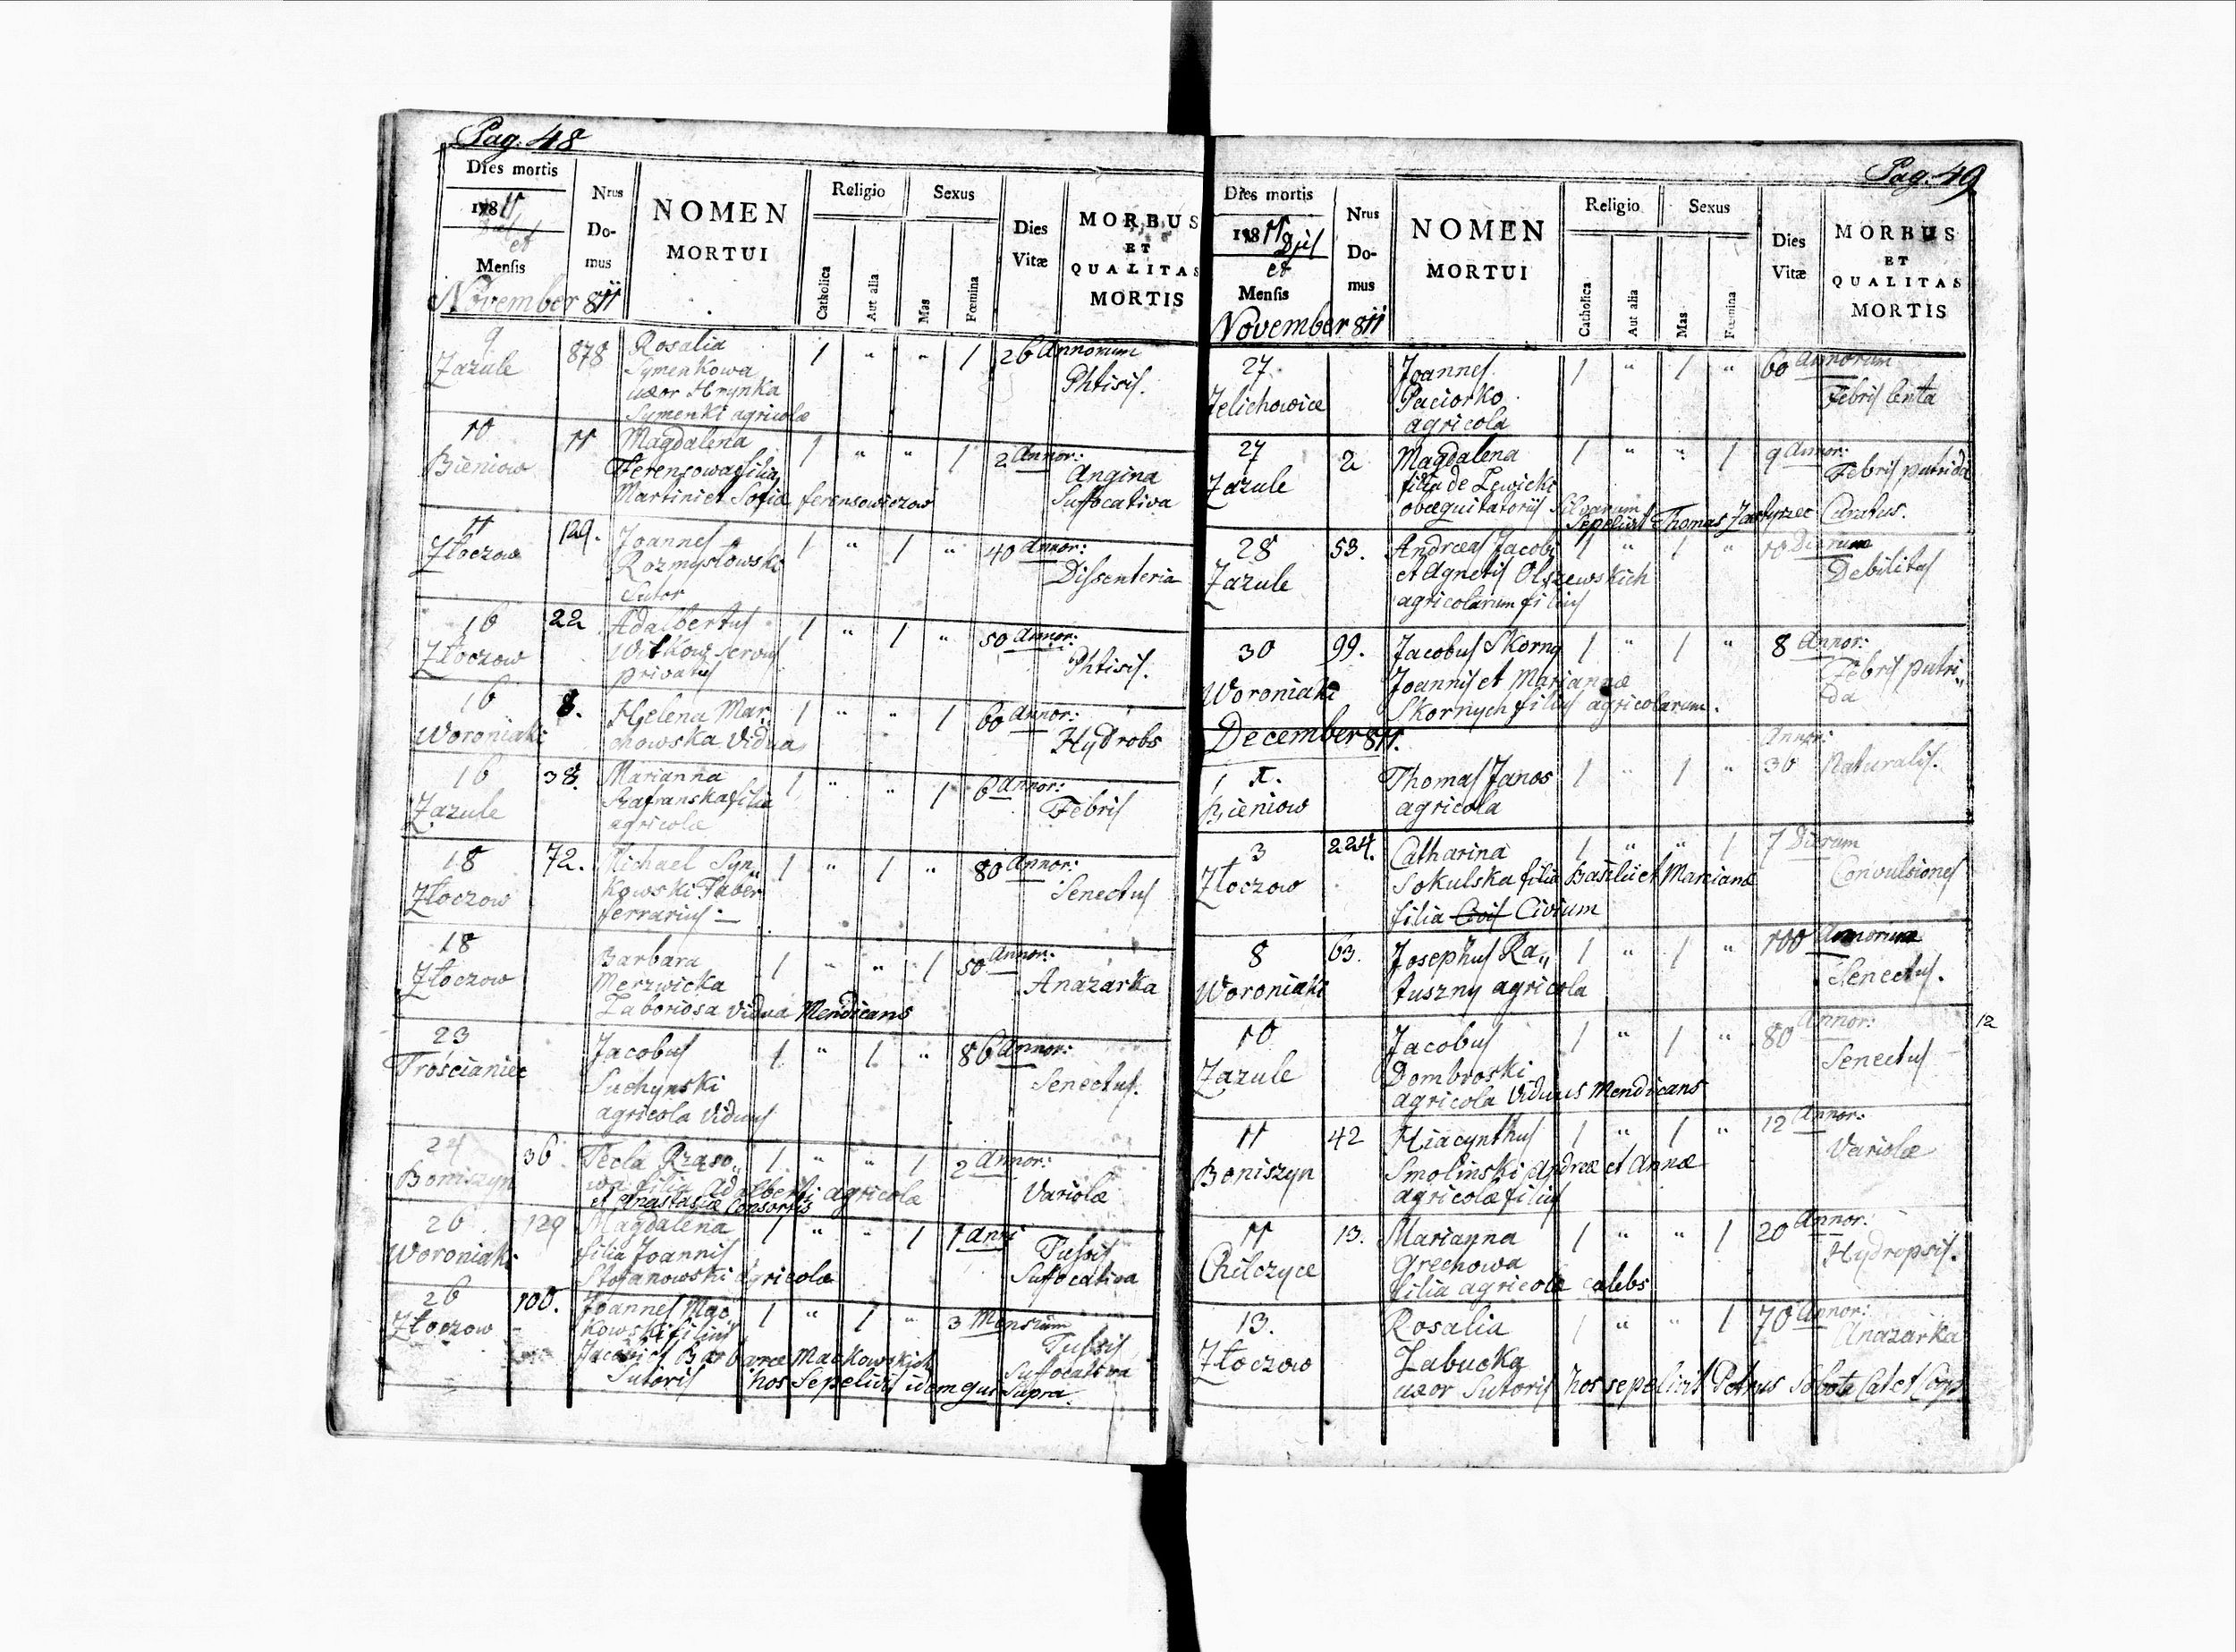 Pag. 48
Dies mortis
et
Mensis
November 811
Nrus
Do-
mus
NOMEN
MORTUI
Religio
Catholica
Aut alia
Sexus
Mas
Fœmina
Dies
Vitæ
MORBUS
ET
QUALITAS
MORTIS
9 878 Rosalia 1 " " 1 26 Annorum
Zazule Symenkowa Phtisis.
uxor Hrynka
Symenki agricolæ
10 11 Magdalena 1 " " 1 2 Annor:
Bieniow Ferensowa filia Angina
Martini et Sofia ferensowiczow Suffocativa
11 129. Joannes 1 " 1 " 40 Annor:
Złoczow Rozmysłowski Dissenteria
Sutor
16 22 Adalbertus 1 " 1 " 50 Annor:
Złoczow Witkow servus Phtisis.
privatus
16 8. Helena Mar 1 " " 1 60 Annor:
Woroniaki chowska Vidua Hydrobs
16 38. Marianna 1 " " 1 6 Annor:
Zazule Szafranska filia Febris
agricolæ
18 72. Michael Syn„ 1 " 1 " 80 Annor:
Złoczow kowski Faber Senectus
ferrarius
18 Barbara 1 " " 1 50 Annor:
Złoczow Merzwicka Anazarka
Laboriosa Vidua Mendicans
23 Jacobus 1 " 1 " 86 Annor:
Trościaniec Suchynski Senectus.
agricola Viduus
24 36 Tecla Rzaso„ 1 " " 1 2 Annor:
Boniszyn wa filia Adalberti agricolæ Variolæ
et Anastasiæ Consortis
26 129 Magdalena 1 " " 1 1 Anni
Woroniaki filia Joannis Tussis
Stofanowski Agricolæ Suffocativa
26 100. Joannes Mac 1 " 1 " 3 Mensium
Złoczow kowski filius Tussis
Jacobi et Barbaræ Mackowskich Suffocativa
Sutoris hos Sepelivit idem qui Supra.
Pag. 49
Dies mortis
et
Mensis
November 811
Nrus
Do-
mus
NOMEN
MORTUI
Religio
Catholica
Aut alia
Sexus
Mas
Fœmina
Dies
Vitæ
MORBUS
ET
QUALITAS
MORTIS
27 Joannes 1 " 1 " 60 Annorum
Zelichowice Paciorko Febris lenta
agricola
27 2 Magdalena 1 " " 1 9 Annor:
Zazule filia de Lewicki Febris putrida
obequitatoris Silvarum
Sepelivit Thomas Curatus.
28 53. Andreas Jacobi 1 " 1 " 10 Dierum
Zazule et Agnetis Olszewskich Debilitas
agricolarum filius
30 99. Jacobus Skorny 1 " 1 " 8 Annor:
Woroniaki Joannis et Mariannæ Febris putri„
Skornych filius agricolarum. da
December 811.
1 Thomas Janos 1 " 1 " 36 Annor: Naturalis.
Bieniow agricola
3 224. Catharina 1 " " 1 7 Dierum
Złoczow Sokulska filia Basilii et Marianæ Convulsiones
filia Civis Civium
8 63. Josephus Ra„ 1 " 1 " 100 Annorum
Woroniaki tuszny agricola Senectus.
10 Jacobus 1 " 1 " 80 Annor: 12
Zazule Dombroski Senectus
agricola Viduus Mendicans
11 42 Hiacynthus 1 " 1 " 12 Annor:
Boniszyn Smolinski Andreæ et Annæ Variolæ
agricolæ filius
11 13. Marianna 1 " " 1 20 Annor:
Chilczyce Grechowa Hydropsis.
filia agricolæ cælebs
13. Rosalia 1 " " 1 70 Annor:
Złoczow Zabucka Anazarka
uxor Sutoris hos sepelivit Petrus Sobota Cat et Coop